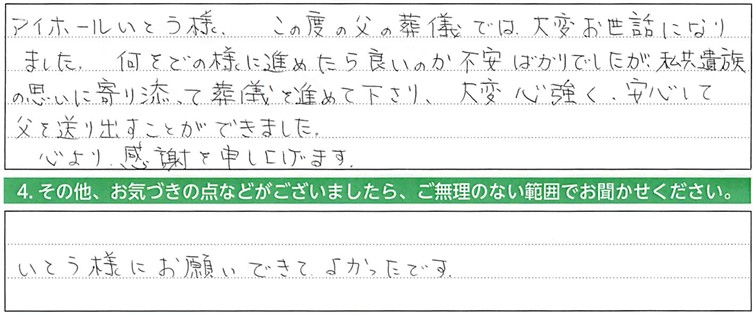 アイホールいとう様、　この度の父の葬儀では、大変お世話になり
ました。　何をどの様に進めたら良いのか不安ばかりでしたが、私共遺族
の思いに寄り添って葬儀を進めて下さり、大変心強く、安心して
父を送り出すことができました。
心より、感謝を申し上げます。
4. その他、お気づきの点などがございましたら、ご無理のない範囲でお聞かせください。
いとう様にお願いできて、よかったです。